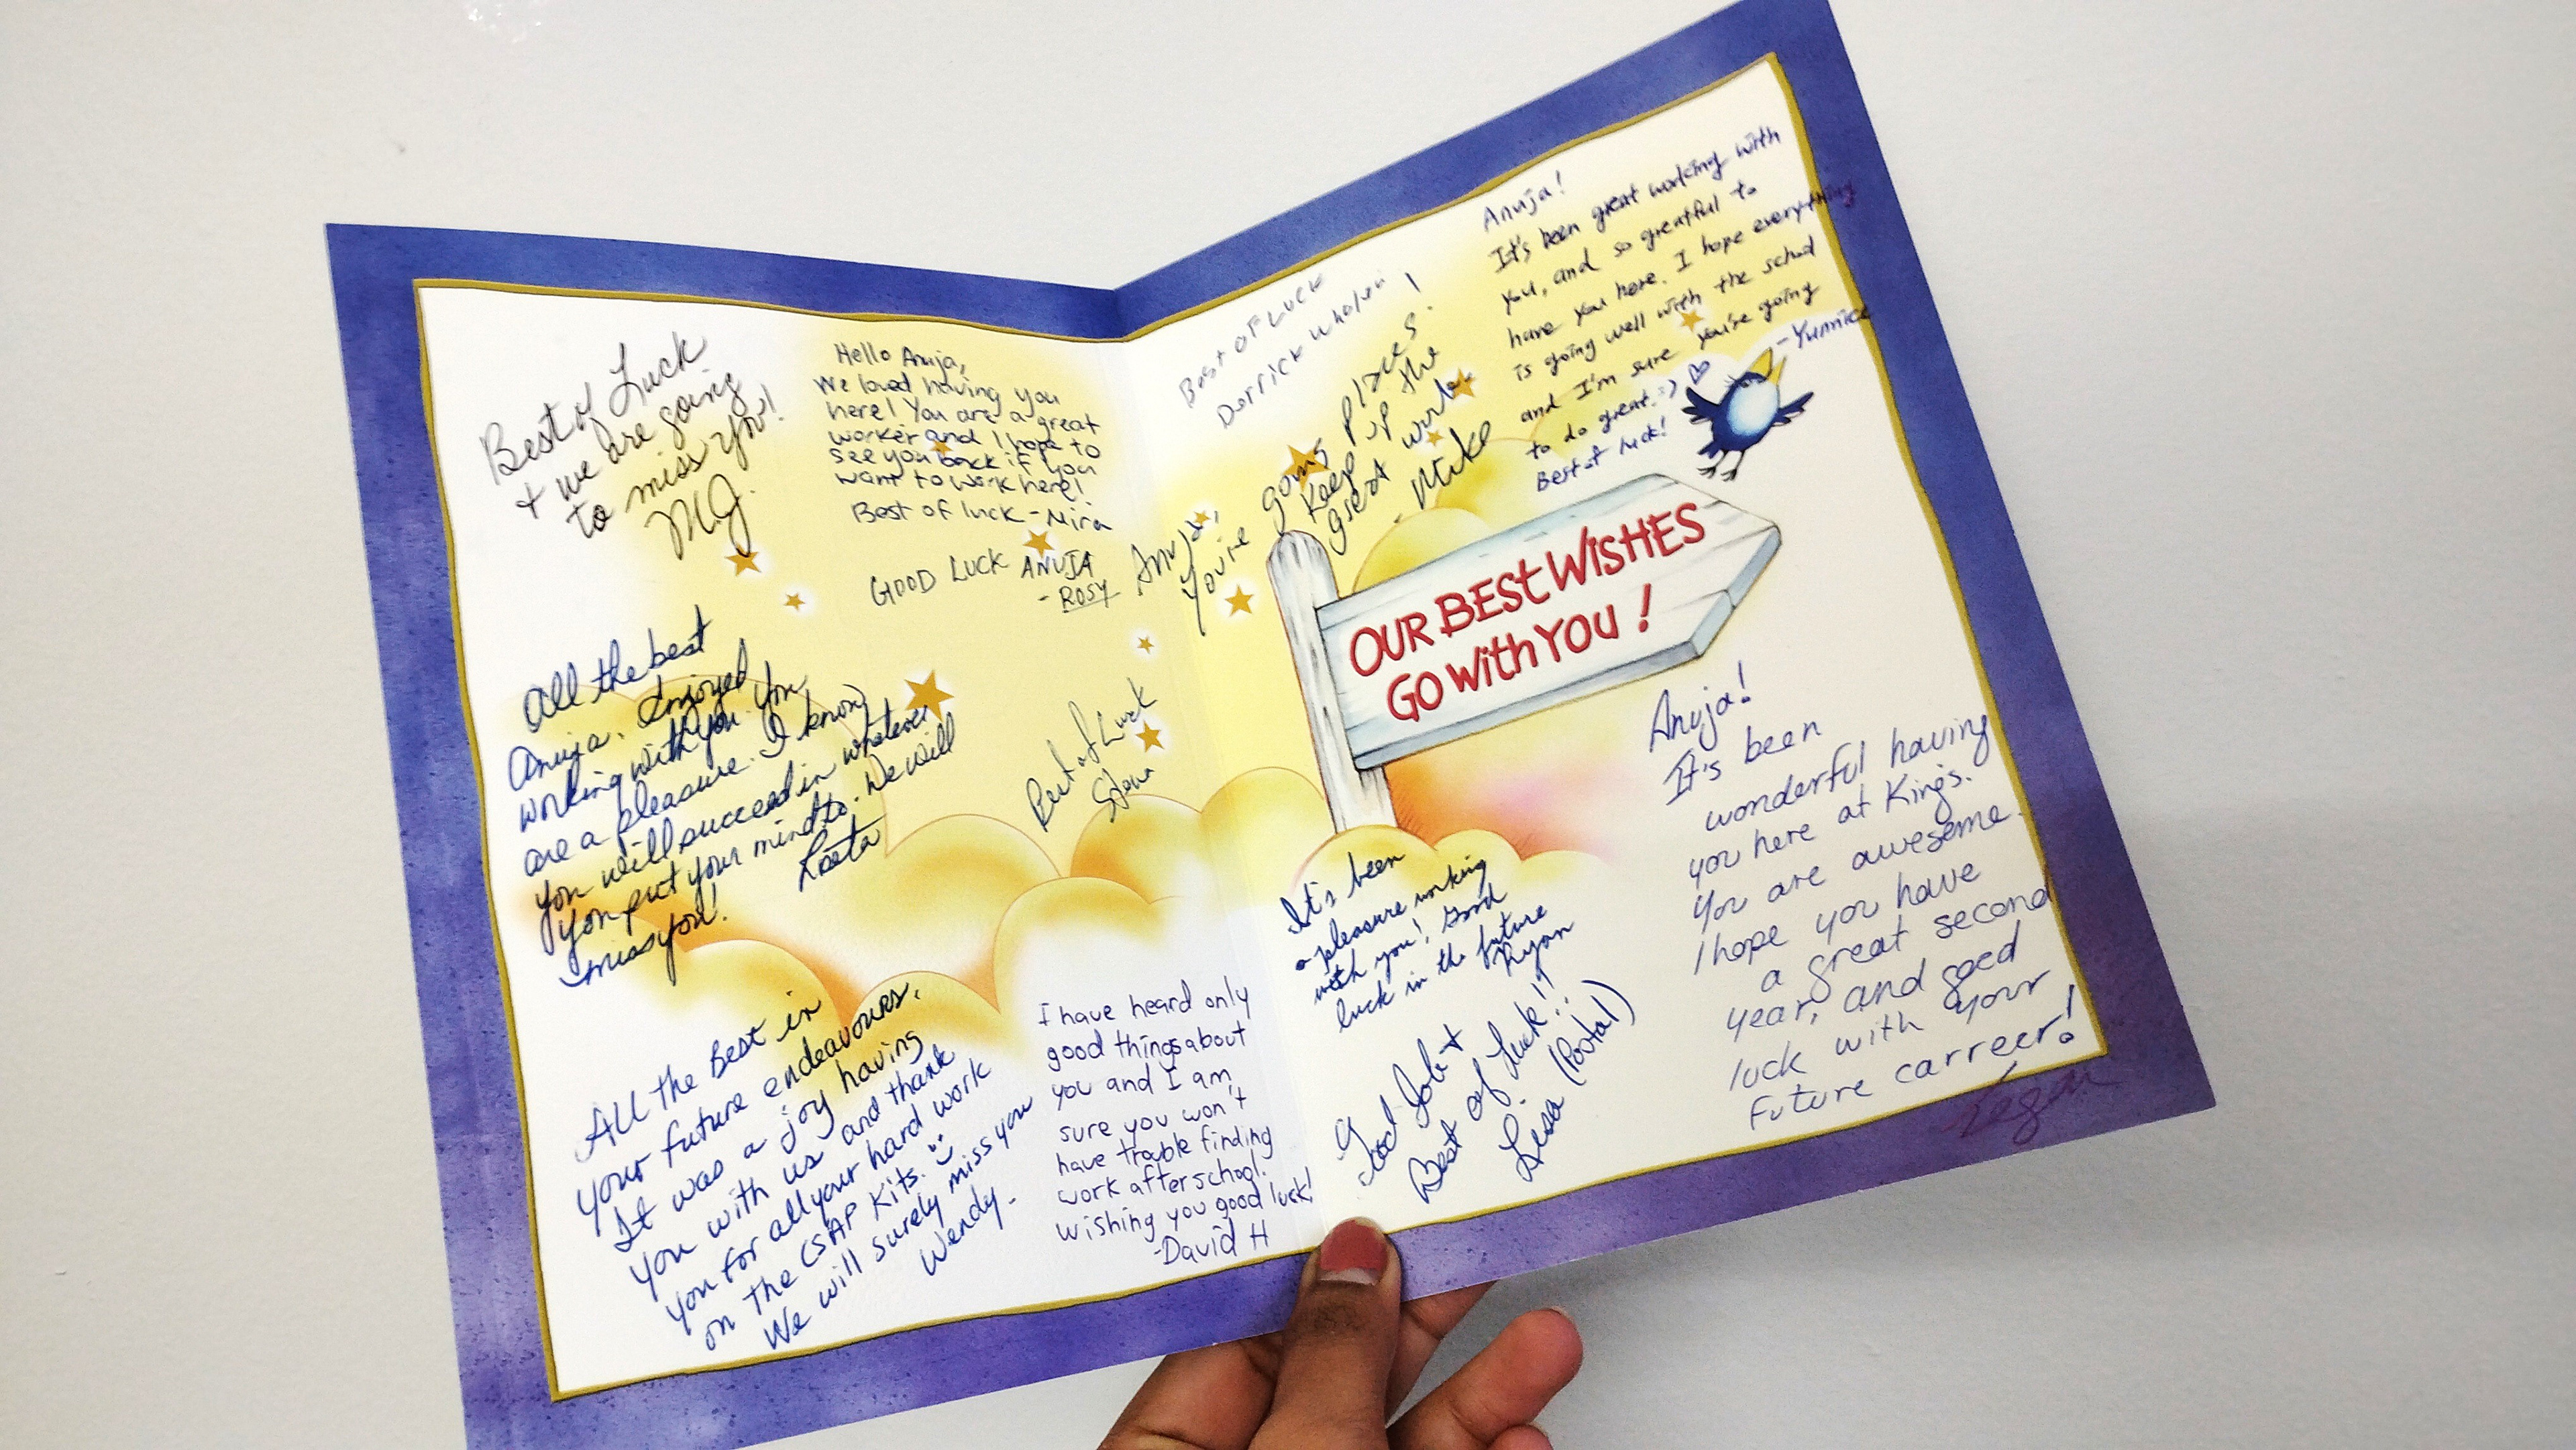 Best of Luck
+ we are going
to miss you!
M.J.
Hello Anuja,
We loved having you
here! You are a great
worker and I hope to
see you back if you
want to work here!
Best of luck - Nira
GOOD LUCK ANUJA
- ROSY
All the best
Anuja. Enjoyed
working with you. You
are a pleasure. I know
you will succeed in whatever
you put your mind to. We will
miss you!
Best of Luck
All the Best in
your future endeavours.
It was a joy having
you with us and thank
you for all your hard work
on the CSAP Kits.
We will surely miss you
Wendy.
I have heard only
good things about
you and I am
sure you won't
have trouble finding
work after school.
Wishing you good luck!
-David H
Best of Luck
Derrick Whalen
Anuja,
You're going places!
Keep up the
great work.
- Mike
Anuja!
It's been great working with
you, and so greatful to
have you here. I hope everything
is going well with the school
and I'm sure you're going
to do great. :) ♡
Best of luck!
-Yunnice
OUR BEST WISHES
GO WITH YOU!
Anuja!
It's been
wonderful having
you here at King's.
You are awesome.
I hope you have
a great second
year, and good
luck with your
future carreer!
It's been
a pleasure working
with you! Good
luck in the future
Ryan
Good Job +
Best of Luck!!
Lisa (Postal)